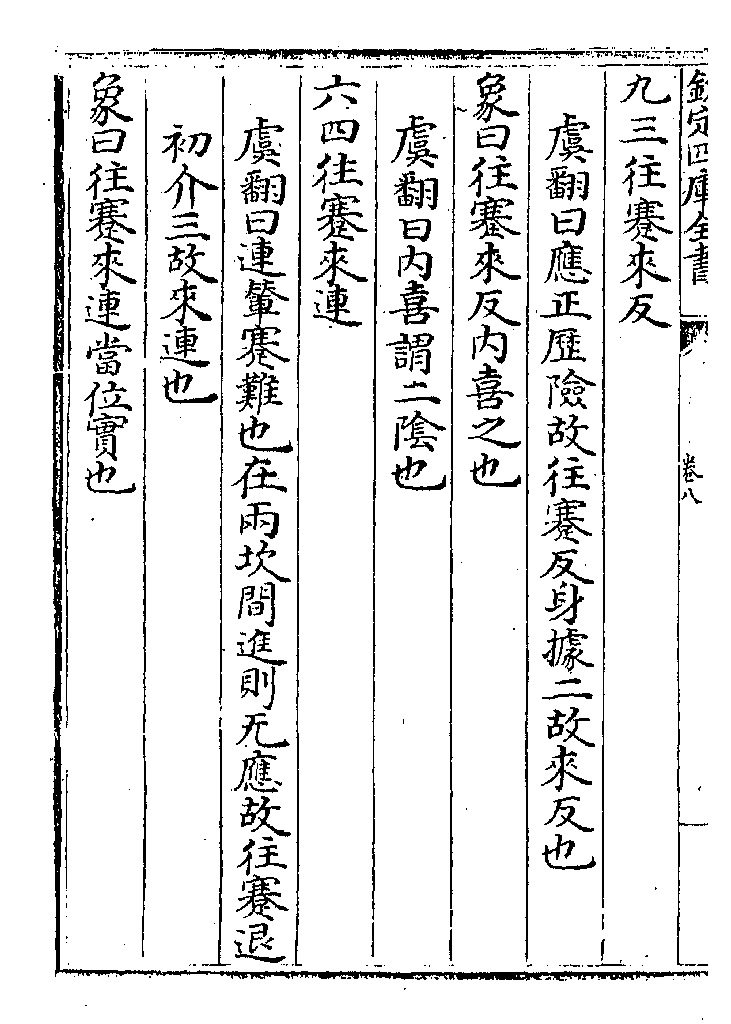 欽定四庫全書
卷八
九三往蹇來反
虞翻曰應正歴險故往蹇反身據二故來反也
象曰往蹇來反内喜之也
虞翻曰内喜謂二隂也
六四往蹇來連
虞翻曰連輦蹇難也在兩坎間進則无應故往蹇退
初介三故來連也
象曰往蹇來連當位實也